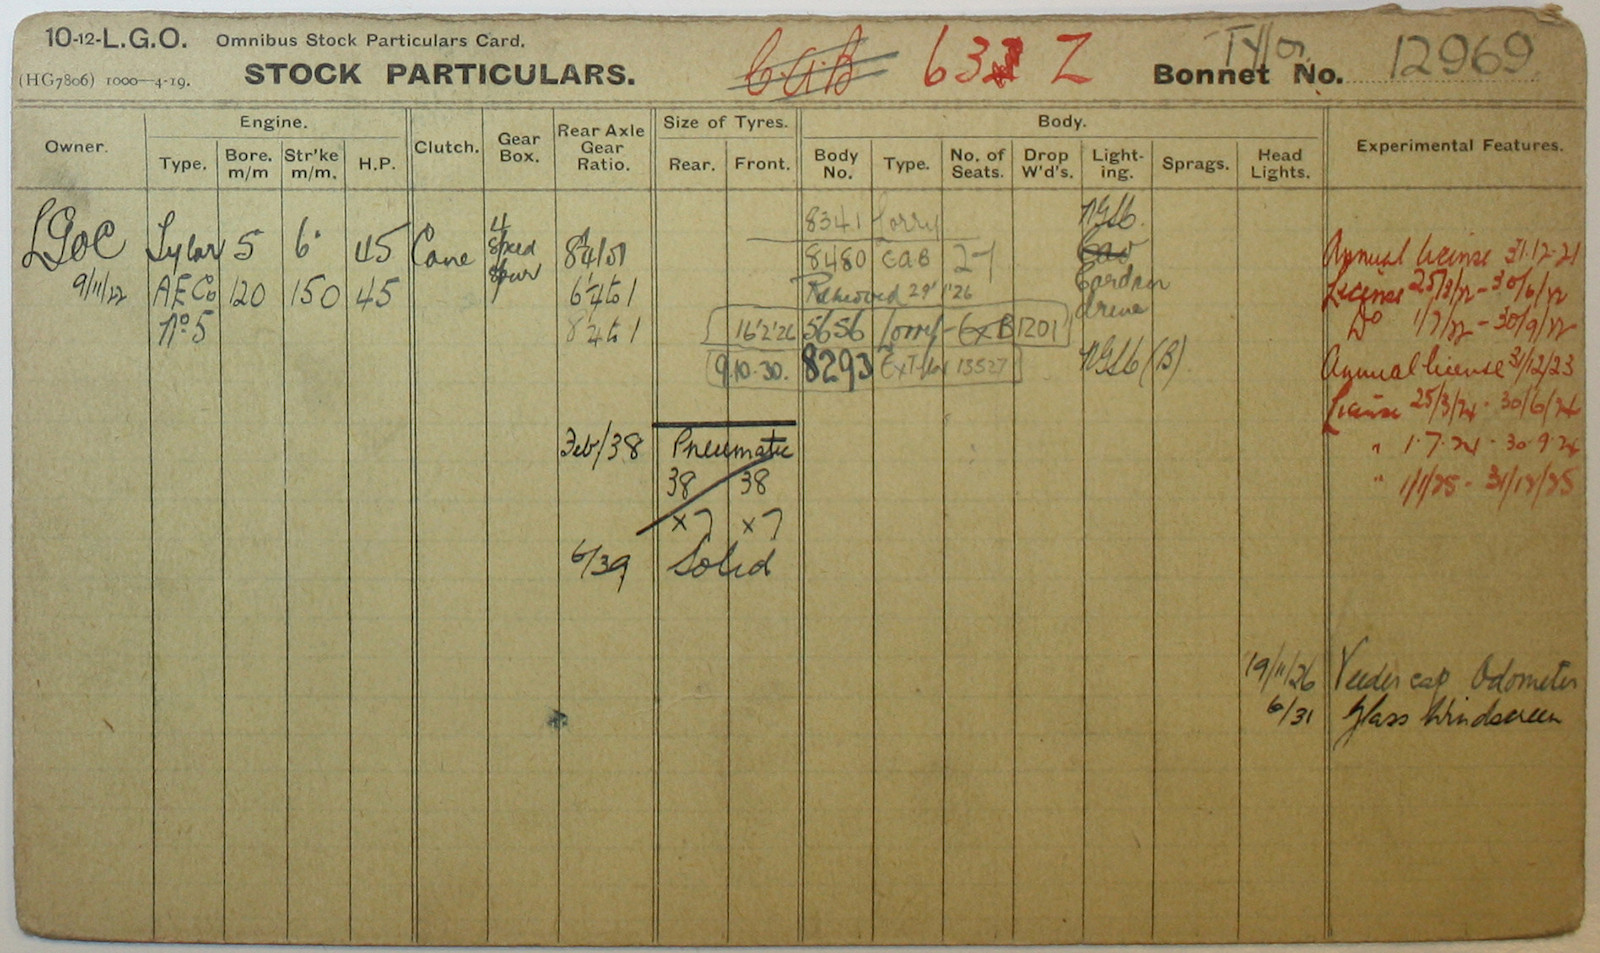 10-12-L.G.O. Omnibus Stock Particulars Card.
(HG7806) 1000—4-19. STOCK PARTICULARS.
CAB 63 Z
Tylor
Bonnet No. 12969
Owner. Engine. Clutch. Gear Box. Rear Axle Gear Ratio. Size of Tyres. Body. Experimental Features.
Type. Bore. m/m Str'ke m/m. H.P. Rear. Front. Body No. Type. No. of Seats. Drop W'd's. Light-ing. Sprags. Head Lights.
8341 Lorry
LGOC Tylor 5" 6" 45 Cone 4 speed 8¼/01 8480 CAB Annual license 31.12.21
9/11/22 AECo 120 150 45 6¼ to 1 Removed 29'1'26 Cardan drive License 25/3/22 - 30/6/22
No 5 8¼ to 1 16'2'26 5656 Lorry - Ex B1201 Do 1/7/22 - 30/9/22
9.10.30. 8293 13527 (B) Annual license 31/12/23
License 25/3/24 - 30/6/24
Feb/38 Pneumatic " 1.7.24 - 30.9.24
38 38 " 1/1/25 - 31/12/25
x7 x7
6/39 Solid
19/11/26 Veeder cap Odometer
6/31 Glass Windscreen